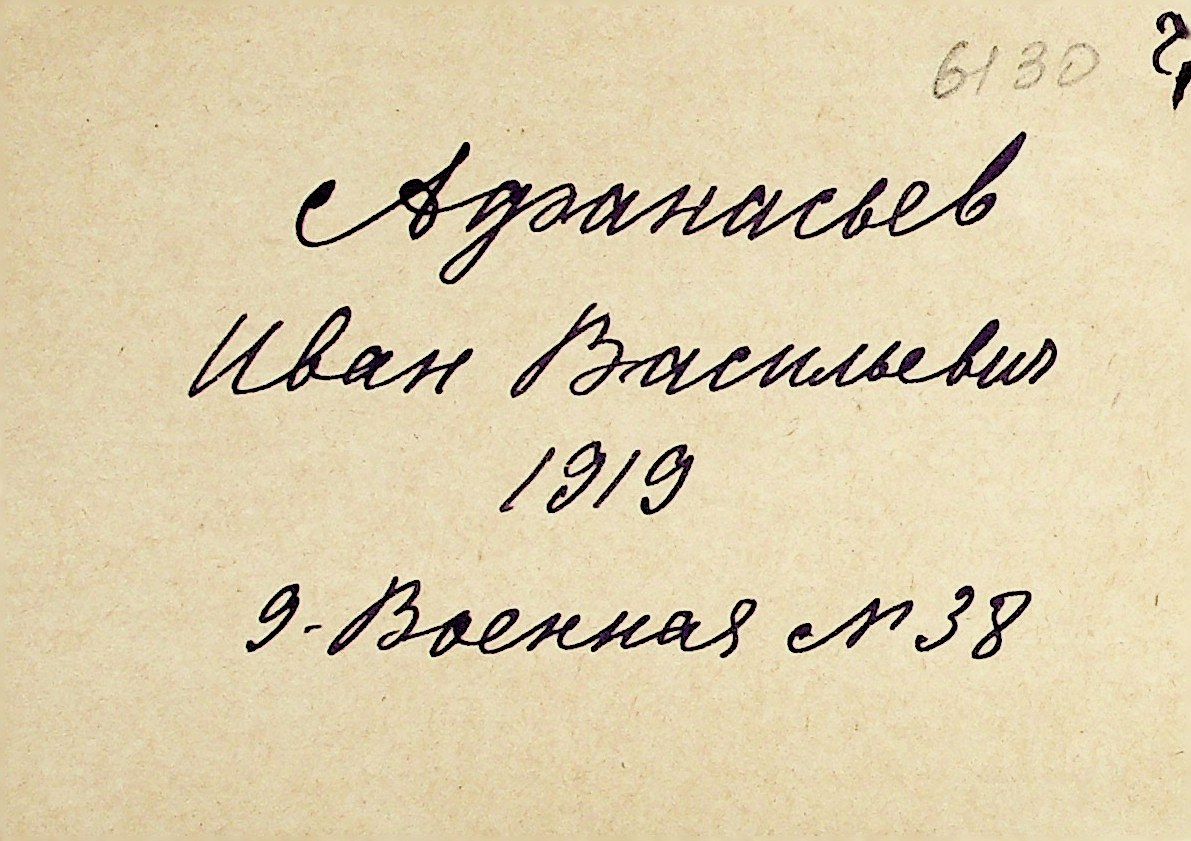 6130
Афанасьев
Иван Васильевич
1919
9-Военная № 38